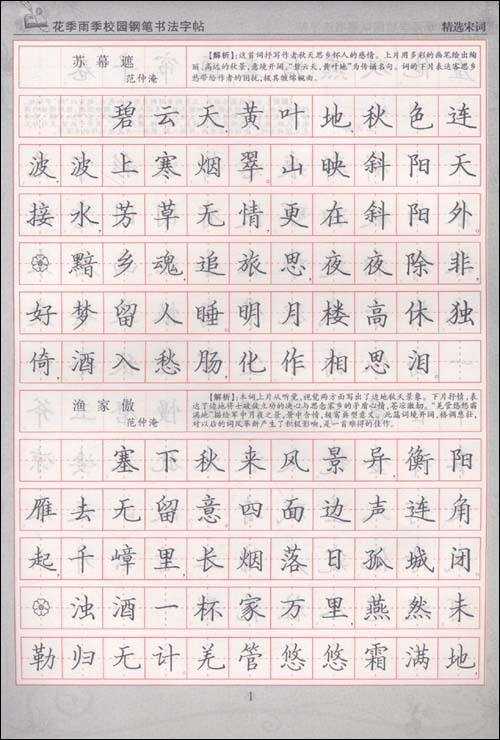 花季雨季校园钢笔书法字帖 精选宋词
苏幕遮
范仲淹
【解析】：这首词抒写作者秋天思乡怀人的感情。上片用多彩的画笔绘出绚
丽、高远的秋景，意境开阔，“碧云天，黄叶地”为传诵名句。词的下片表达客思乡
愁带给作者的困扰，极其缠绵婉曲。
碧云天黄叶地秋色连
波波上寒烟翠山映斜阳天
接水芳草无情更在斜阳外
黯乡魂追旅思夜夜除非
好梦留人睡明月楼高休独
倚酒入愁肠化作相思泪
渔家傲
范仲淹
【解析】：本词上片从听觉、视觉两方面写出了边地秋天景象。下片抒情，表
达了边地将士破敌立功的决心与思念家乡的矛盾心情，苍凉激韧。“羌管悠悠霜
满地”描绘军中月夜之景，景中含情，极富典型意义。此篇词境开阔，格调悲壮，
对以后的词风革新产生了积极影响，是一首难得的佳作。
塞下秋来风景异衡阳
雁去无留意四面边声连角
起千嶂里长烟落日孤城闭
浊酒一杯家万里燕然未
勒归无计羌管悠悠霜满地
1